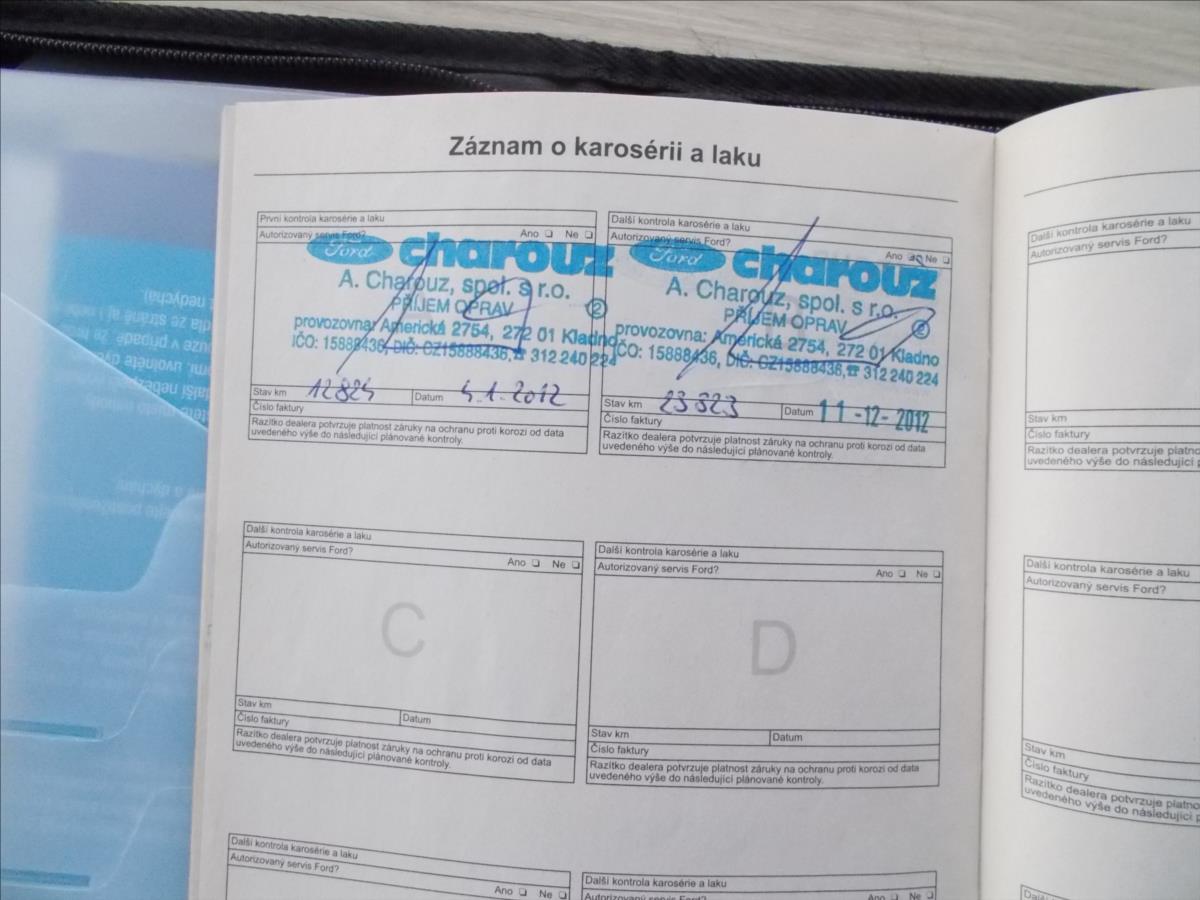 Záznam o karosérii a laku
První kontrola karosérie a laku
Autorizovaný servis Ford?
Ano ❏ Ne ❏
Ford charouz
A. Charouz, spol. s r.o.
PŘÍJEM OPRAV 2
provozovna: Americká 2754, 272 01 Kladno
IČO: 15888436, DIČ: CZ15888436, ☎ 312 240 224
Stav km 12824 Datum 4.1.2012
Číslo faktury
Razítko dealera potvrzuje platnost záruky na ochranu proti korozi od data
uvedeného výše do následující plánované kontroly.
Další kontrola karosérie a laku
Autorizovaný servis Ford?
Ano ❏ Ne ❏
Ford charouz
A. Charouz, spol. s r.o.
PŘÍJEM OPRAV 2
provozovna: Americká 2754, 272 01 Kladno
IČO: 15888436, DIČ: CZ15888436, ☎ 312 240 224
Stav km 23823 Datum 11-12-2012
Číslo faktury
Razítko dealera potvrzuje platnost záruky na ochranu proti korozi od data
uvedeného výše do následující plánované kontroly.
Další kontrola karosérie a laku
Autorizovaný servis Ford?
Ano ❏ Ne ❏
C
Stav km Datum
Číslo faktury
Razítko dealera potvrzuje platnost záruky na ochranu proti korozi od data
uvedeného výše do následující plánované kontroly.
Další kontrola karosérie a laku
Autorizovaný servis Ford?
Ano ❏ Ne ❏
D
Stav km Datum
Číslo faktury
Razítko dealera potvrzuje platnost záruky na ochranu proti korozi od data
uvedeného výše do následující plánované kontroly.
Další kontrola karosérie a laku
Autorizovaný servis Ford?
Ano ❏ Ne ❏
Další kontrola karosérie a laku
Autorizovaný servis Ford?
Ano ❏ Ne ❏
Další kontrola karosérie a laku
Autorizovaný servis Ford?
Stav km
Číslo faktury
Razítko dealera potvrzuje
uvedeného výše do následující
Další kontrola karosérie a laku
Autorizovaný servis Ford?
Stav km
Číslo faktury
Razítko dealera potvrzuje
uvedeného výše do následující